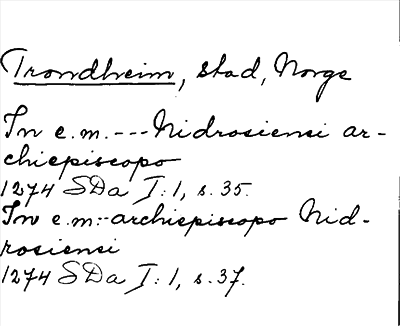 Trondheim, stad, Norge
In e.m.---Nidrosiensi ar-
chiepiscopo
1274 SDa I:1, s.35.
In e.m:-archiepiscopo Nid-
rosiensi
1274 SDa I:1, s.37.